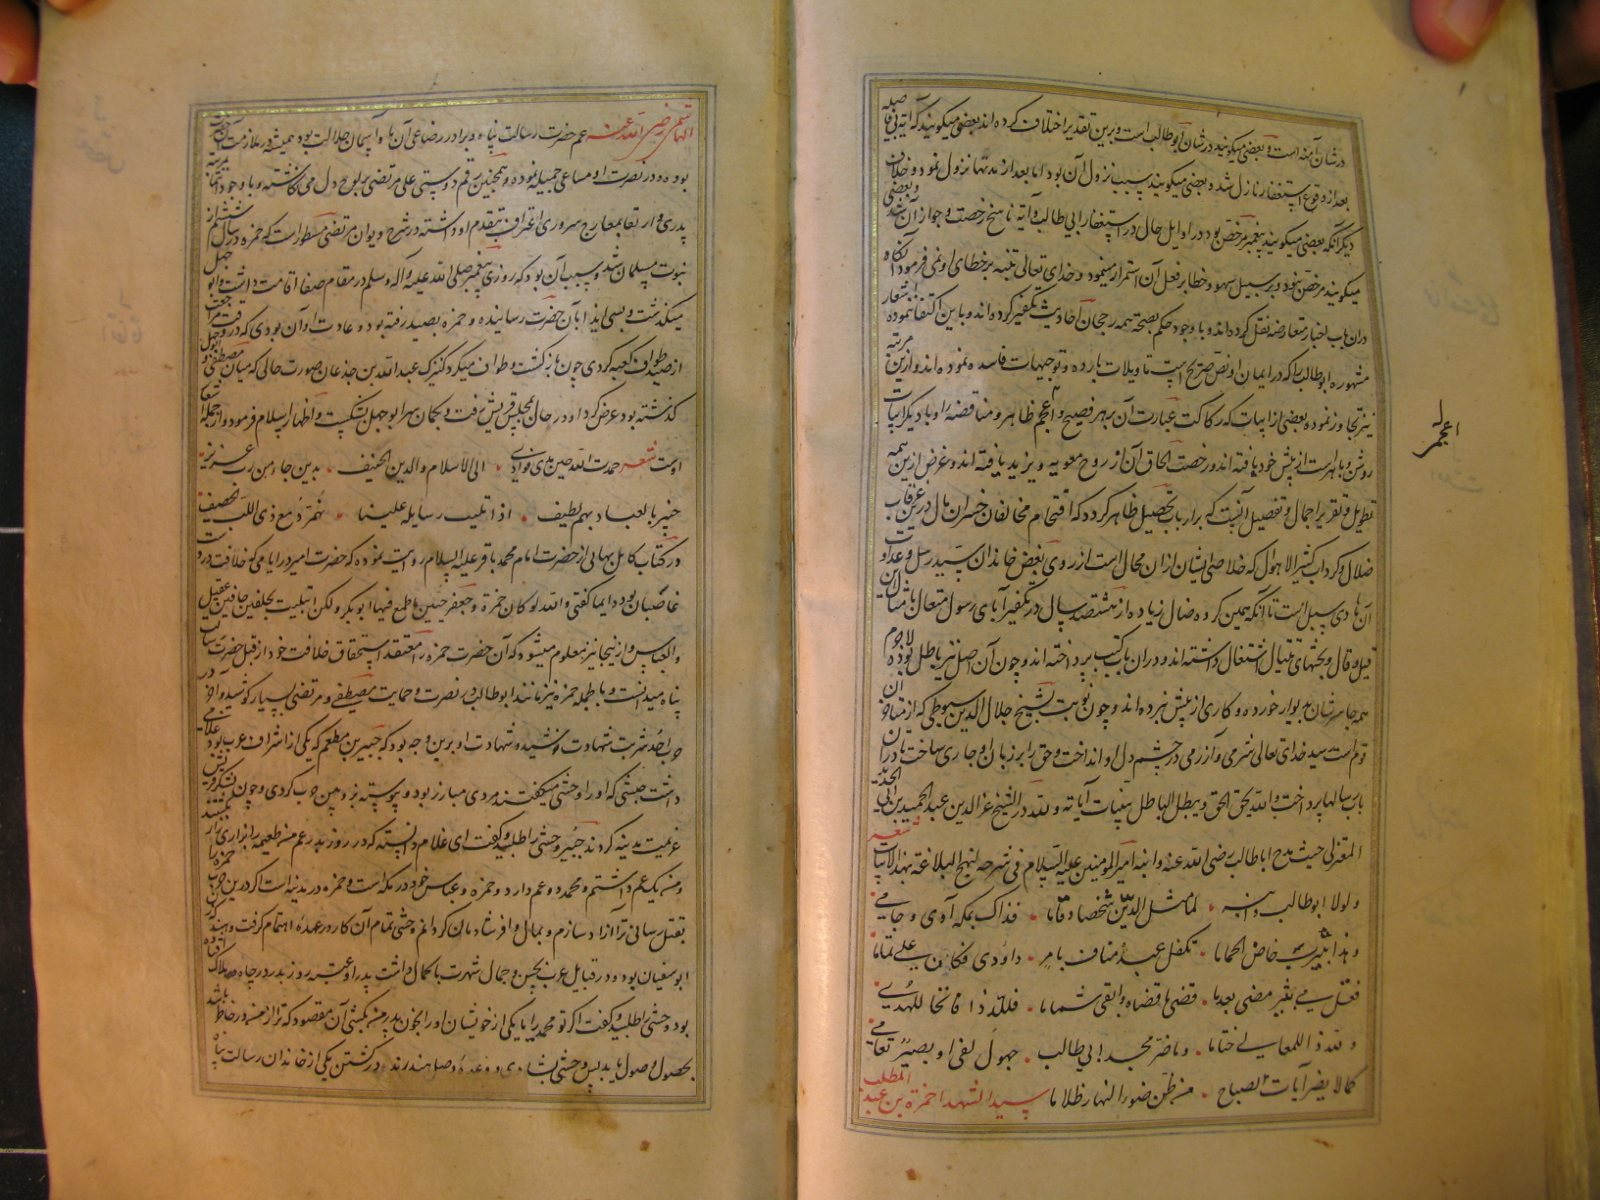 در شان آمنه است و بعضی میگویند در شان ابوطالب است و برین تقدیر اختلاف کرده اند بعضی میگویند که آیه
بعد از وقوع استغفار نازل شد و بعضی میگویند سبب نزول آن بود اما بعد از مدتها نزول نمود و خلاف
دیگر آنکه بعضی میگویند پیغمبر مرخص بود در اوایل حال در استغفار ابی طالب و آیه ناسخ رخصت و جواز آن شد و بعضی
میگویند مرخص نبود و بر سبیل سهو و خطا بر فعل آن استمرار مینمود و خدای تعالی تنبیه بر خطای او نمی فرمود آنکاه
در آن باب اخبار متعارضه نقل کرده اند و با وجود حکم بصحة همه رجحان احادیث تکفیر کرده اند و باین اکتفا ننموده اشعار
مشهوره ابوطالب را که در ایمان او نص صریح است تاویلات بارده و توجیهات فاسده نموده اند و ازین مرتبه
نیز تجاوز نموده بعضی از ابیات که رکاکت عبارت آن بر هر فصیح و اعجم ظاهر و مناقضه او با دیگر ابیات
روشن و باهر است از پیش خود یافته اند و رخصت الحاق آن از روح معویه و یزید یافته اند و غرض ازین همه
تطویل و تقریر اجمال و تفصیل آنست که بر ارباب تحصیل ظاهر گردد که اقتحام مخالفان خسران مال در غرقاب
ضلال و گرداب کثیر الاهوال که خلاصی ایشان از آن محال است از روی بغض خاندان سید رسل و عداوت
آن هادی سبل است تا آنکه همین گروه ضال زیاده از هشتصد سال در تکفیر آبای رسول متعال با مثال این
قیل و قال و بحثهای اشتغال داشته اند و در آن باب کتب پرداخته اند و چون آن اصل نیز باطل بوده لاجرم
همه جا سر شان بدیوار خورده و کاری از پیش نبرده اند و چون نوبت بشیخ جلال الدین سیوطی که از متاخران
قوم است رسید خدای تعالی شرمی و آزرمی در چشم دل او انداخت و حق را بر زبان او جاری ساخت تا در آن
باب رسالها پرداخت والله یحق الحق و یبطل الباطل ببینات آیاته و لله در الشیخ عز الدین عبد الحمید بن ابی الحدید
المعتزلی حیث مدح اباطالب رضی الله عنه و ابنه امیر المومنین علیه السلام فی شرحه لنهج البلاغة بهذه الابیات شعر
ولولا ابوطالب و ابنه • لما مثل الدین شخصا وقاما • فذاک بمکة آوی و حامی
وهذا بیثرب خاض الحماما • تکفل عبد مناف بامر • و اودی فکان علی تماما
فقل فی ثبیر مضی بعدما • قضی ما قضاه و ابقی شماما • فلله ذا فاتحا للهدی
ولله ذا للمعالی ختاما • وما ضر مجد ابی طالب • جهول لغی او بصیر تعامی
کما لا یضر آیات الصباح • من ظن ضوء النهار ظلاما سید الشهدا حمزة بن عبد المطلب
اعجم
الهاشمی رضی الله عنه عم حضرت رسالت پناه و برادر رضاعی آن ماه آسمان جلالت بود همیشه در ملازمت آنحضرت
بوده و در نصرت او مساعی جمیله نموده و همچنین رقم دوستی علی مرتضی بر لوح دل می نگاشته و با وجود مرتبه
پدری و ارتقا بمعارج سروری اعتراف بتقدم او داشته در شرح دیوان مرتضی مسطور است که حمزه در سال ششم از
نبوت مسلمان شد و سبب آن بود که روزی پیغمبر صلی الله علیه و آله وسلم در مقام صفا اقامت داشت و ابو جهل
میگذشت و بسی ایذا بآن حضرت رسانیده و حمزه بصید رفته بود و عادت او آن بودی که در وقت مراجعت
از صید طواف کعبه کردی چون باز گشت و طواف میکرد کنیزک عبدالله بن جذعان صورت حالی که میان مصطفی و ابو جهل
گذشته بود عرض کرد او در حال بمجلس قریش رفت و بکمان سر ابو جهل بشکست و اظهار اسلام فرمود و از جمله اشعار
اوست شعر حمدت الله حین هدی فوادی • الی الاسلام والدین الحنیف • بدین جاء من رب عزیز
خبیر بالعباد بهم لطیف • اذا تلیت رسایله علینا • تحدر دمع ذی اللب الحصیف
و در کتاب کامل بهائی از حضرت امام محمد باقر علیه السلام روایت نموده که حضرت امیر در ایامی که خلافت در دست
غاصبان بود دایما گفتی والله لو کان حمزة و جعفر حیین ما طمع فیها ابوبکر ولکن ابتلیت بجلفین جافیین عقیل
والعباس و از اینجا نیز معلوم میشود که آن حضرت حمزه را معتقد استحقاق خلافت خود از قبل حضرت رسالت
پناه میدانست و بالجمله حمزه نیز مانند ابوطالب در نصرت و حمایت مصطفی و مرتضی بسیار کوشید و آخر در
حرب احد شربت شهادت نوشید و شهادت او برین وجه بود که جبیر بن مطعم که یکی از اشراف عرب بود غلامی
داشت حبشی که او را وحشی میگفتند مردی مبارز بود و پیوسته بزوبین حرب کردی و چون لشکر قریش
عزیمت مدینه کردند جبیر وحشی را طلبید و گفت ای غلام دانسته که در روز بدر عم من طعیمه را بزاری زار بکشتند
و من یک عم داشتم و محمد دو عم دارد حمزه و عباس خود در مکه است و حمزه در مدینه است اگر درین حرب حمزه را
بقتل رسانی ترا آزاد سازم و بمال وافر شادمان گردانم وحشی تمام آن کار در عهدهٔ اهتمام گرفت و هند که زن
ابوسفیان بود و در قبایل عرب بحسن و جمال شهرت با کمال داشت پدر او عتبه روز بدر در چاه هلاک افتاده
بود وحشی را طلبید و گفت اگر تو محمد را یا یکی از خویشان او را بخون پدر من بکشی آن مقصود که ترا از من در خاطر باشد
بحصول وصول یابد پس وحشی بشادی وعدهٔ وصل هند رند در کشتن یکی از خاندان رسالت پناه